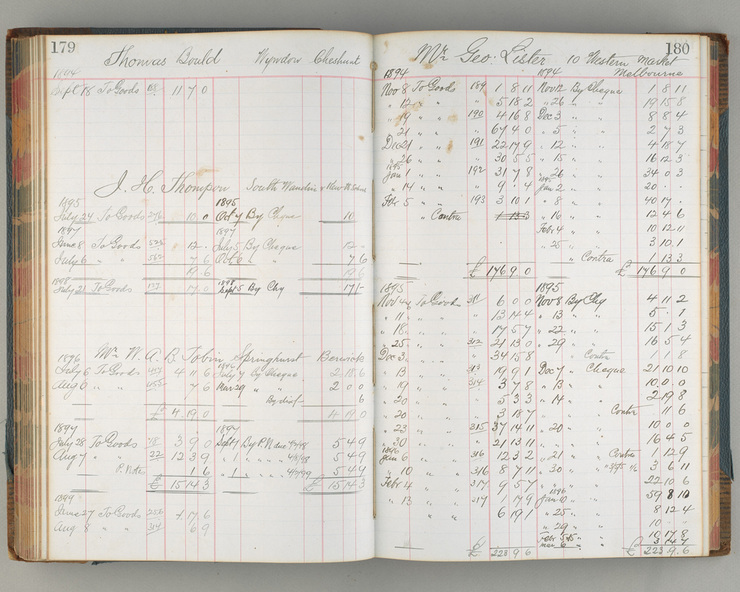 179
Thomas Bould Wyndow Cheshunt
Sept 18 To Goods 11 7 0
J. H. Thompson South Wandin
1895
July 24 To Goods 10 0
1895
Oct 7 By Cheque 10
1897
June 8 To Goods 12
July 6 " " 7 6
19 6
1897
July 5 By Cheque 12
Oct 6 " 7 6
19 6
1898
July 21 To Goods 17 0
1898
Sept 5 By Chq 17/-
Mr W. A. B. Tobin Springhurst Berwick
1896
July 6 To Goods 4 11 6
Aug 6 " " 7 6
£ 4 19 0
July 7 By Cheque 2 18 6
2 0 0
By disct 6
4 19 0
1897
July 28 To Goods 3 9 0
Aug 7 " " 12 3 9
P. Note 1 6
£ 15 14 3
1897
Sept 1 By P.N. due 5 4 9
" 1 " " 5 4 9
" 1 " " 5 4 9
£ 15 14 3
1899
June 27 To Goods 4 17 6
Aug 8 " " 6 9
180
Mr Geo: Lister 10 Western Market
Melbourne
1894
Nov 8 To Goods 189 1 8 11
" 12 " " 5 18 2
" 19 " " 190 4 16 8
" 21 " " 67 4 0
Dec 21 " " 191 22 17 9
" 26 " " 30 5 5
1895
Jan 1 " " 192 31 7 8
" 14 " " 9 4
Feb 5 " " 193 3 10 1
" Contra 1 13 3
£ 176 9 0
1894
Nov 12 By Cheque 1 8 11
" 26 " " 19 15 8
Dec 3 " " 8 8 4
" 5 " " 2 7 3
" 12 " " 4 18 7
" 15 " " 16 12 3
" 26 " " 34 0 3
1895
Jan 2 " " 20
" 8 " " 40 17
" 16 " " 12 4 6
Feb 4 " " 10 12 11
" 25 " " 3 10 1
" Contra 1 13 3
£ 176 9 0
1895
Nov 4 To Goods 311 6 0 0
" 11 " " 13 14 4
" 18 " " 17 5 7
" 25 " " 312 21 13 0
Dec 3 " " 34 15 8
" " 313 19 9 1
" 19 " " 314 3 7 8
" 20 " " 5 3 3
" 20 " " 3 18 7
" 23 " " 315 37 14 11
" 30 " " 21 13 11
1896
Jan 6 " " 316 12 3 2
" 10 " " 316 8 7 11
Feb 4 " " 317 9 5 7
" 13 " " 317 1 7 9
" " 6 19 1
£ 223 9 6
1895
Nov 8 By Chq 4 11 2
" 13 " " 5 1
" 22 " " 15 1 3
" 29 " " 16 5 4
Contra 1 1 8
Dec 7 " Cheque 21 10 10
" 13 " " 10 0 0
" 14 " " 2 19 8
Contra 11 6
" 20 " " 10 0 0
16 4 5
" 21 " Contra 1 12 9
" 30 " " 3 6 11
22 10 6
1896
Jan 10 " " 59 8 10
" 25 " " 8 12 4
" 29 " " 10
19 17 8
£ 223 9 6